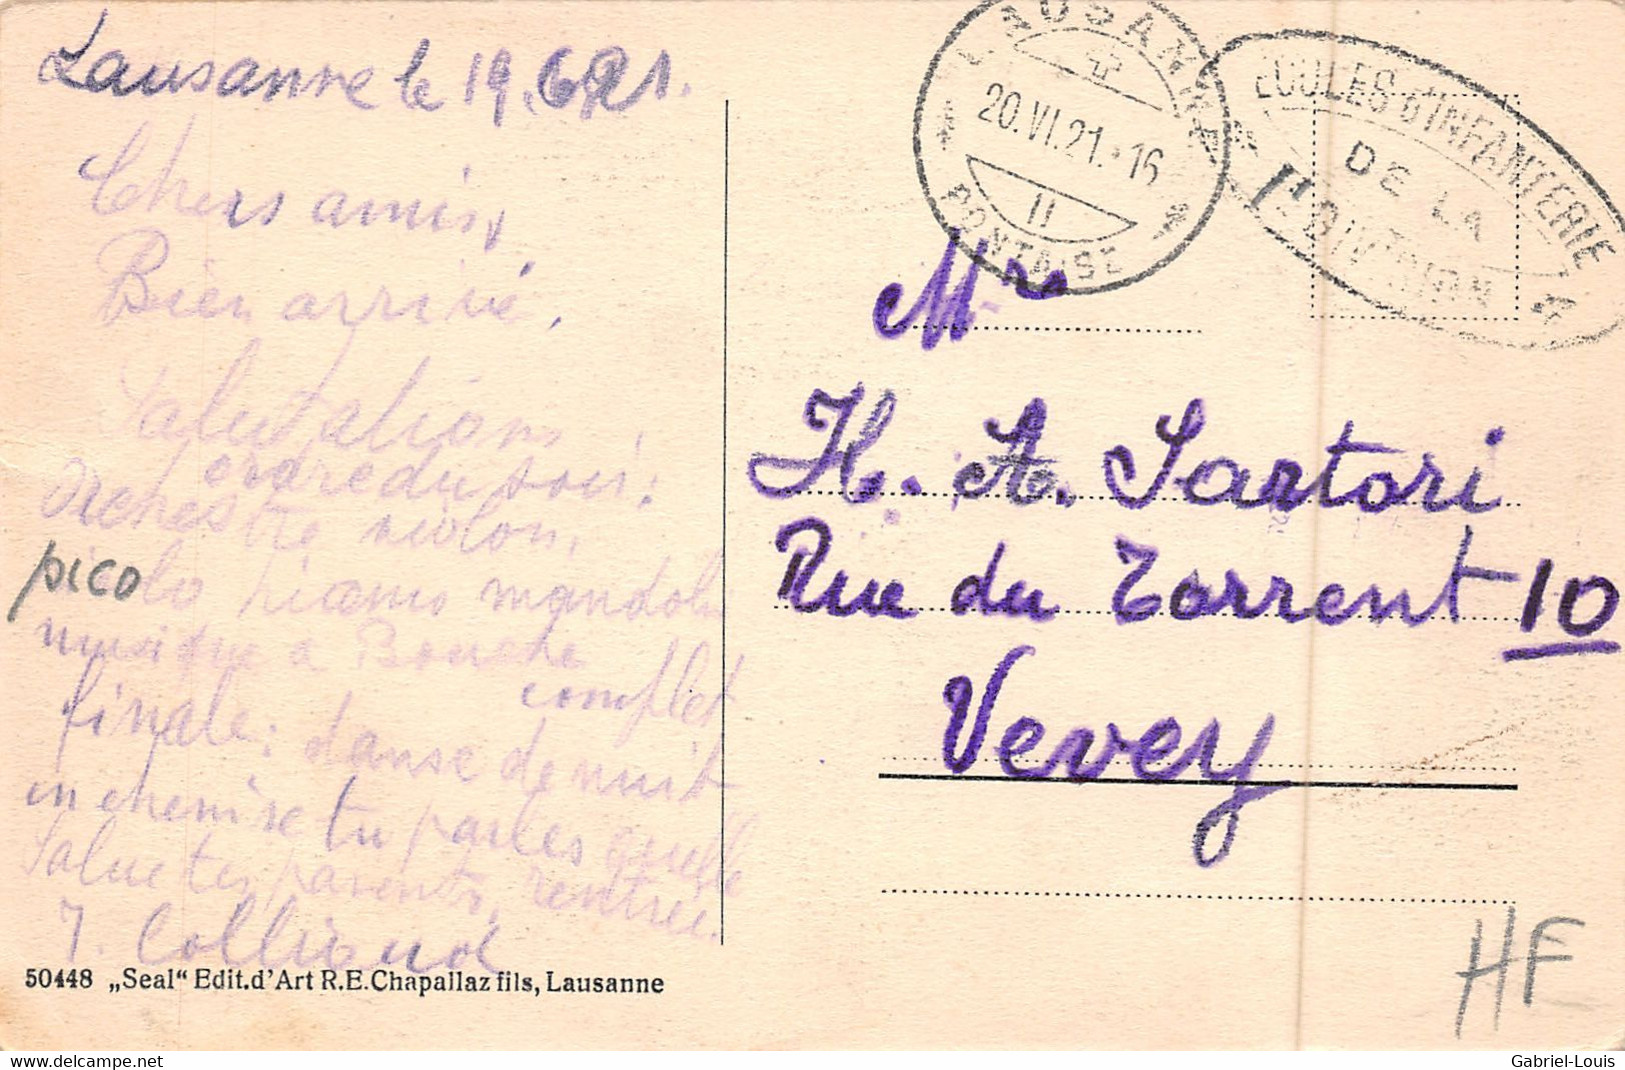 Lausanne le 19.6.21.
Chers amis,
Bien arrivé.
Salutations
ordre du soir:
Orchestre violon,
picolo piano mandolin
musique a Bouche
complet
finale: danse de nuit
en chemise tu parles quelle
Salue tes parents, rentrée.
J. Colliaud
50448 „Seal" Edit.d'Art R.E.Chapallaz fils, Lausanne
LAUSANNE
20.VI.21.-16
II
PONTAISE
ECOLES D'INFANTERIE
DE LA
Ire DIVISION
Mr
H. A. Sartori
Rue du Torrent 10
Vevey
HF
delcampe.net
Gabriel-Louis